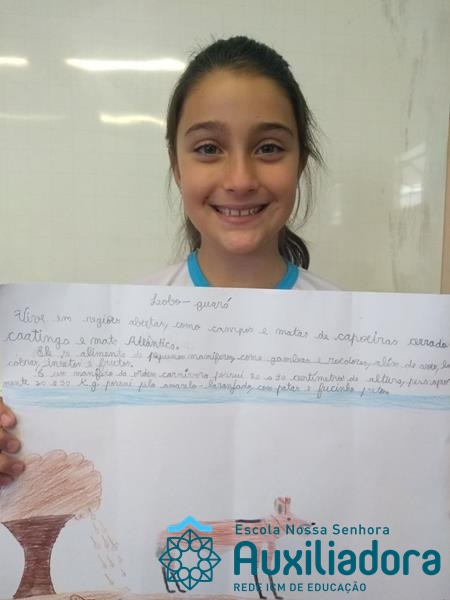 Lobo-guará
Vive em regiões abertas, como campos e matas de capoeiras cerrado
caatinga e mata Atlântica.
Ele se alimenta de pequenos mamíferos, como gambás e roedores, além de aves,
cobras, insetos e frutos.
É um mamífero da ordem carnívora possui 20 a 90 centímetros de altura, pesa apro
mente 20 a 30 Kg possui pelo amarelo-laranjado, com patas e fucinho pretos.
Escola Nossa Senhora
Auxiliadora
REDE ICM DE EDUCAÇÃO